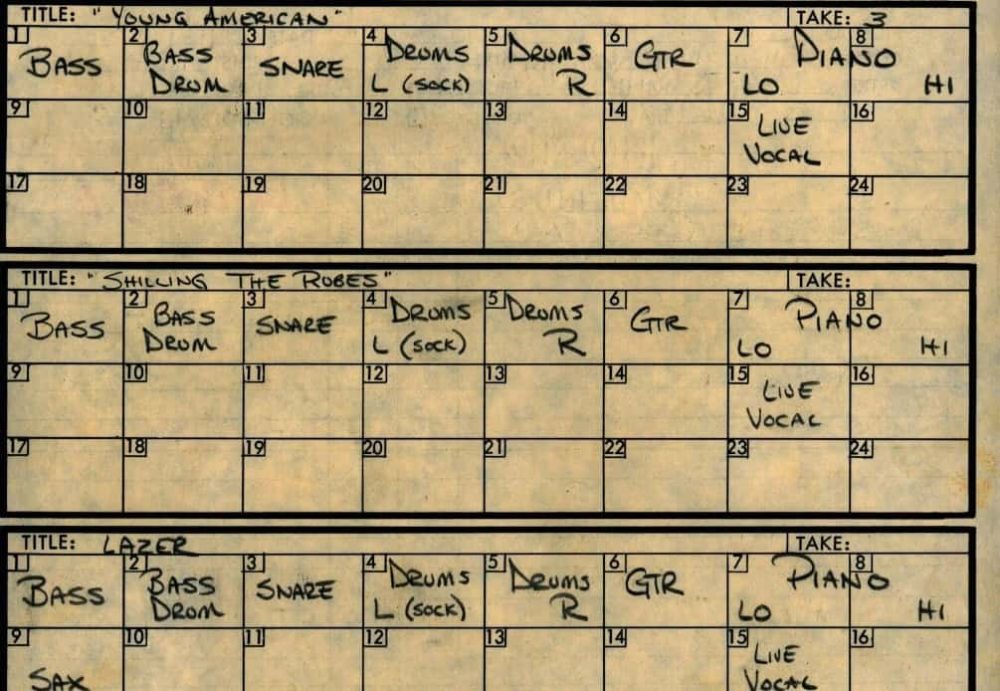 TITLE: "YOUNG AMERICAN" TAKE: 3
1 BASS 2 BASS DRUM 3 SNARE 4 DRUMS L (SOCK) 5 DRUMS R 6 GTR 7 LO PIANO 8 HI
9 10 11 12 13 14 15 LIVE VOCAL 16
17 18 19 20 21 22 23 24
TITLE: "SHILLING THE RUBES" TAKE:
1 BASS 2 BASS DRUM 3 SNARE 4 DRUMS L (SOCK) 5 DRUMS R 6 GTR 7 LO PIANO 8 HI
9 10 11 12 13 14 15 LIVE VOCAL 16
17 18 19 20 21 22 23 24
TITLE: LAZER TAKE:
1 BASS 2 BASS DRUM 3 SNARE 4 DRUMS L (SOCK) 5 DRUMS R 6 GTR 7 LO PIANO 8 HI
9 SAX 10 11 12 13 14 15 LIVE VOCAL 16